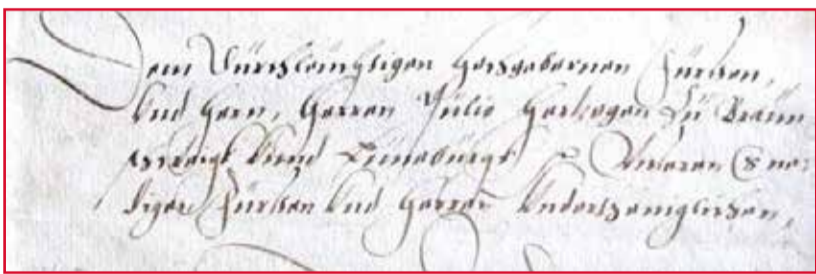 Dem Dürchleüchtigen Hochgebornen Fürsten,
Vnd Hern, Herren Jülio Hertzogen Zü Braün
schweigk Vnnd Lünebürgk Vnseren Gne=
digen Fürsten Vnd Herren Vnderthenighlichen,